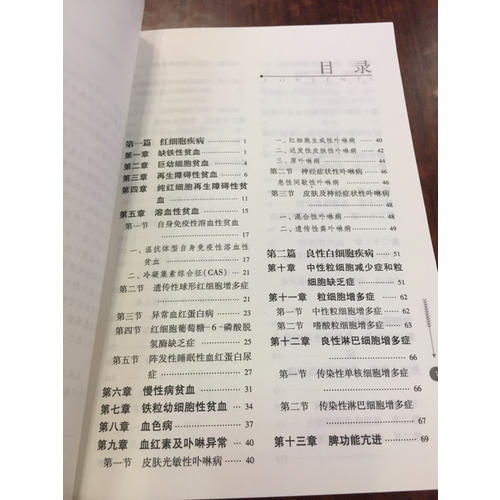 目 录
CONTENTS
第一篇 红细胞疾病 1
第一章 缺铁性贫血 1
第二章 巨幼细胞贫血 4
第三章 再生障碍性贫血 6
第四章 纯红细胞再生障碍性贫
血 11
第五章 溶血性贫血 15
第一节 自身免疫性溶血性贫血
17
一、温抗体型自身免疫性溶血性
贫血 17
二、冷凝集素综合征(CAS) 21
第二节 遗传性球形红细胞增多症
21
第三节 异常血红蛋白病 23
第四节 红细胞葡萄糖-6-磷酸脱
氢酶缺乏症 25
第五节 阵发性睡眠性血红蛋白尿
症 27
第六章 慢性病贫血 31
第七章 铁粒幼细胞性贫血 34
第八章 血色病 37
第九章 血红素及卟啉异常 40
第一节 皮肤光敏性卟啉病 40
一、红细胞生成性卟啉病 40
二、迟发性皮肤性卟啉病 44
三、原卟啉病 46
第二节 神经症状性卟啉病
急性间歇性卟啉病 46
第三节 皮肤及神经症状性卟啉病
48
一、混合性卟啉病 48
二、遗传性粪卟啉病 49
第二篇 良性白细胞疾病 51
第十章 中性粒细胞减少症和粒
细胞缺乏症 51
第十一章 粒细胞增多症 62
第一节 中性粒细胞增多症 62
第二节 嗜酸粒细胞增多症 63
第十二章 良性淋巴细胞增多症
66
第一节 传染性单核细胞增多症
66
第二节 传染性淋巴细胞增多症
67
第十三章 脾功能亢进 69